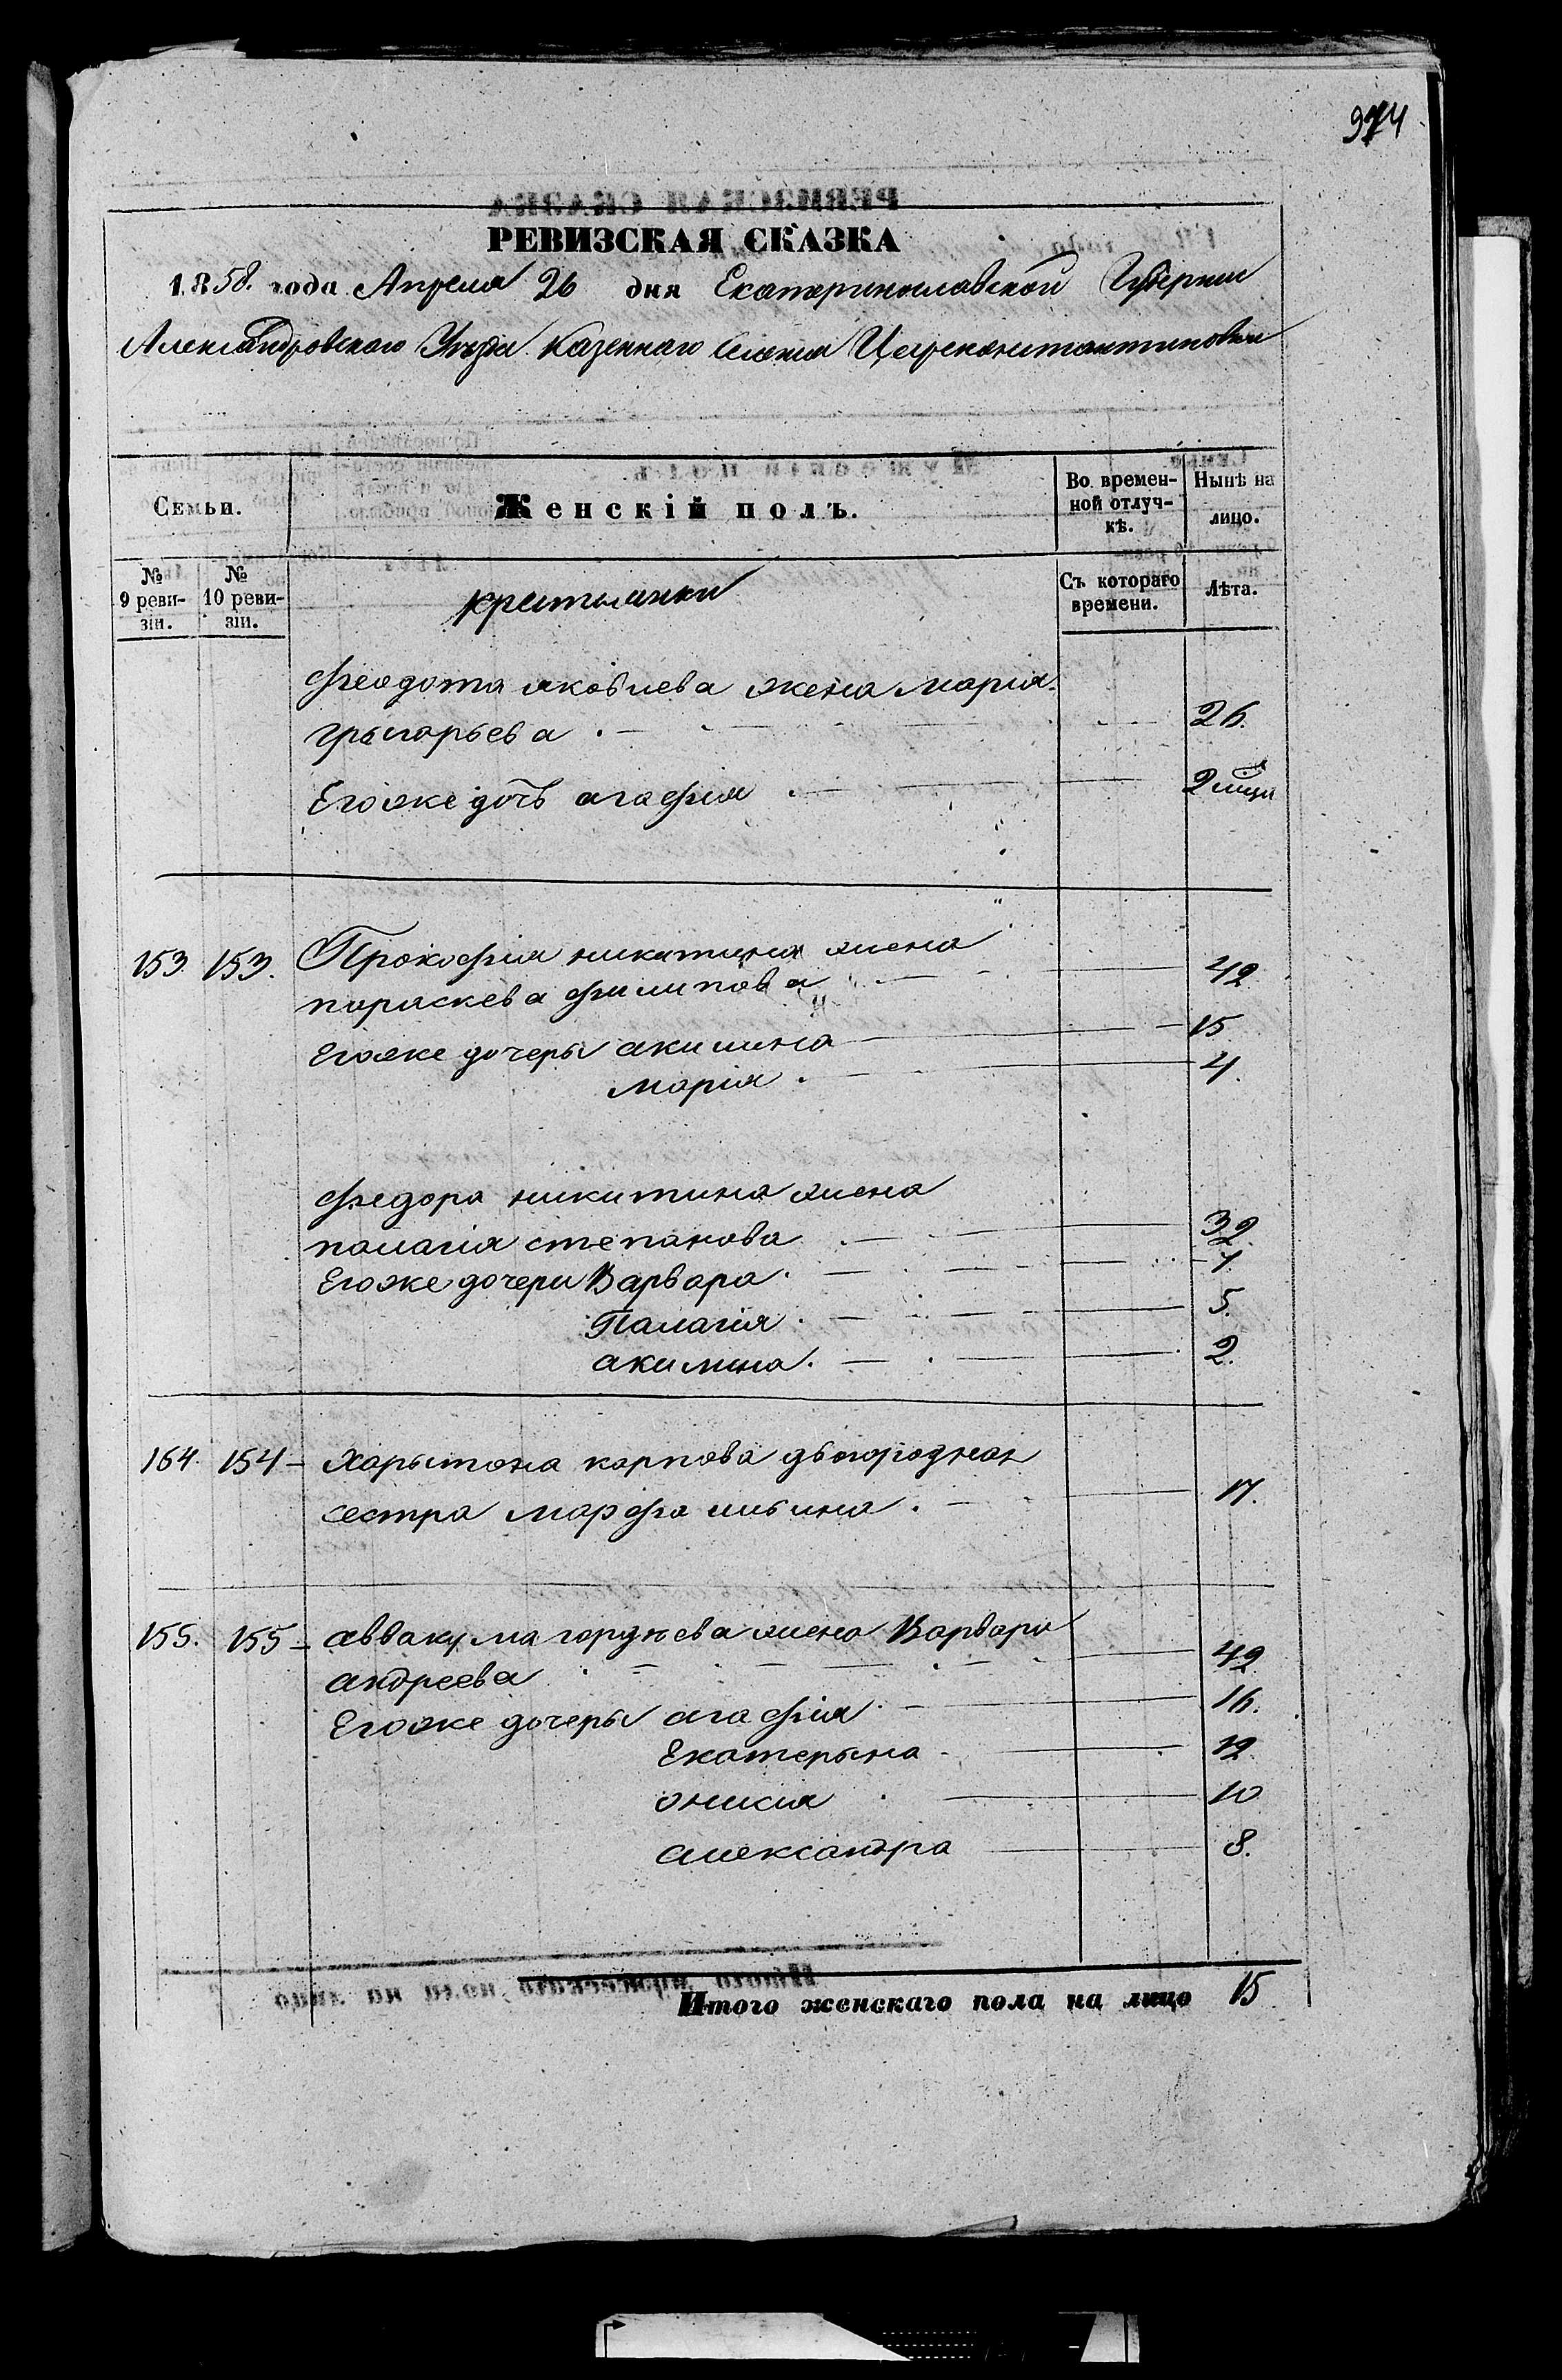 974
РЕВИЗСКАЯ СКАЗКА
1858. года Апреля 26 дня Екатеринославской Губернии
Александровского Уезда Казенного Селения Цареконстантиновки
Семьи.
Женскій полъ.
Во времен-
ной отлуч-
кѣ.
Нынѣ на
лицо.
№
9 реви-
зіи.
№
10 реви-
зіи.
крестьянки
Съ котораго
времени.
Лѣта.
Феодота яковлева жена марія
грыгорьева 26.
Егоже дочь агафия 2
153. 153. Прокофия никитина жена
параскева филипова 42
Егоже дочеры акилина 15
мария 4.
Федора никитина жена
палагия степанова 32.
Егоже дочери Варвара
Палагия 5.
акилина 2.
154. 154 Харытона карпова двоюродная
сестра марфа 17.
155. 155 аввакума гордеева жена Варвара
андреева 42
Егоже дочеры агафия 16.
Екатерына 12
10
александра 8.
Итого женскаго пола на лицо 15